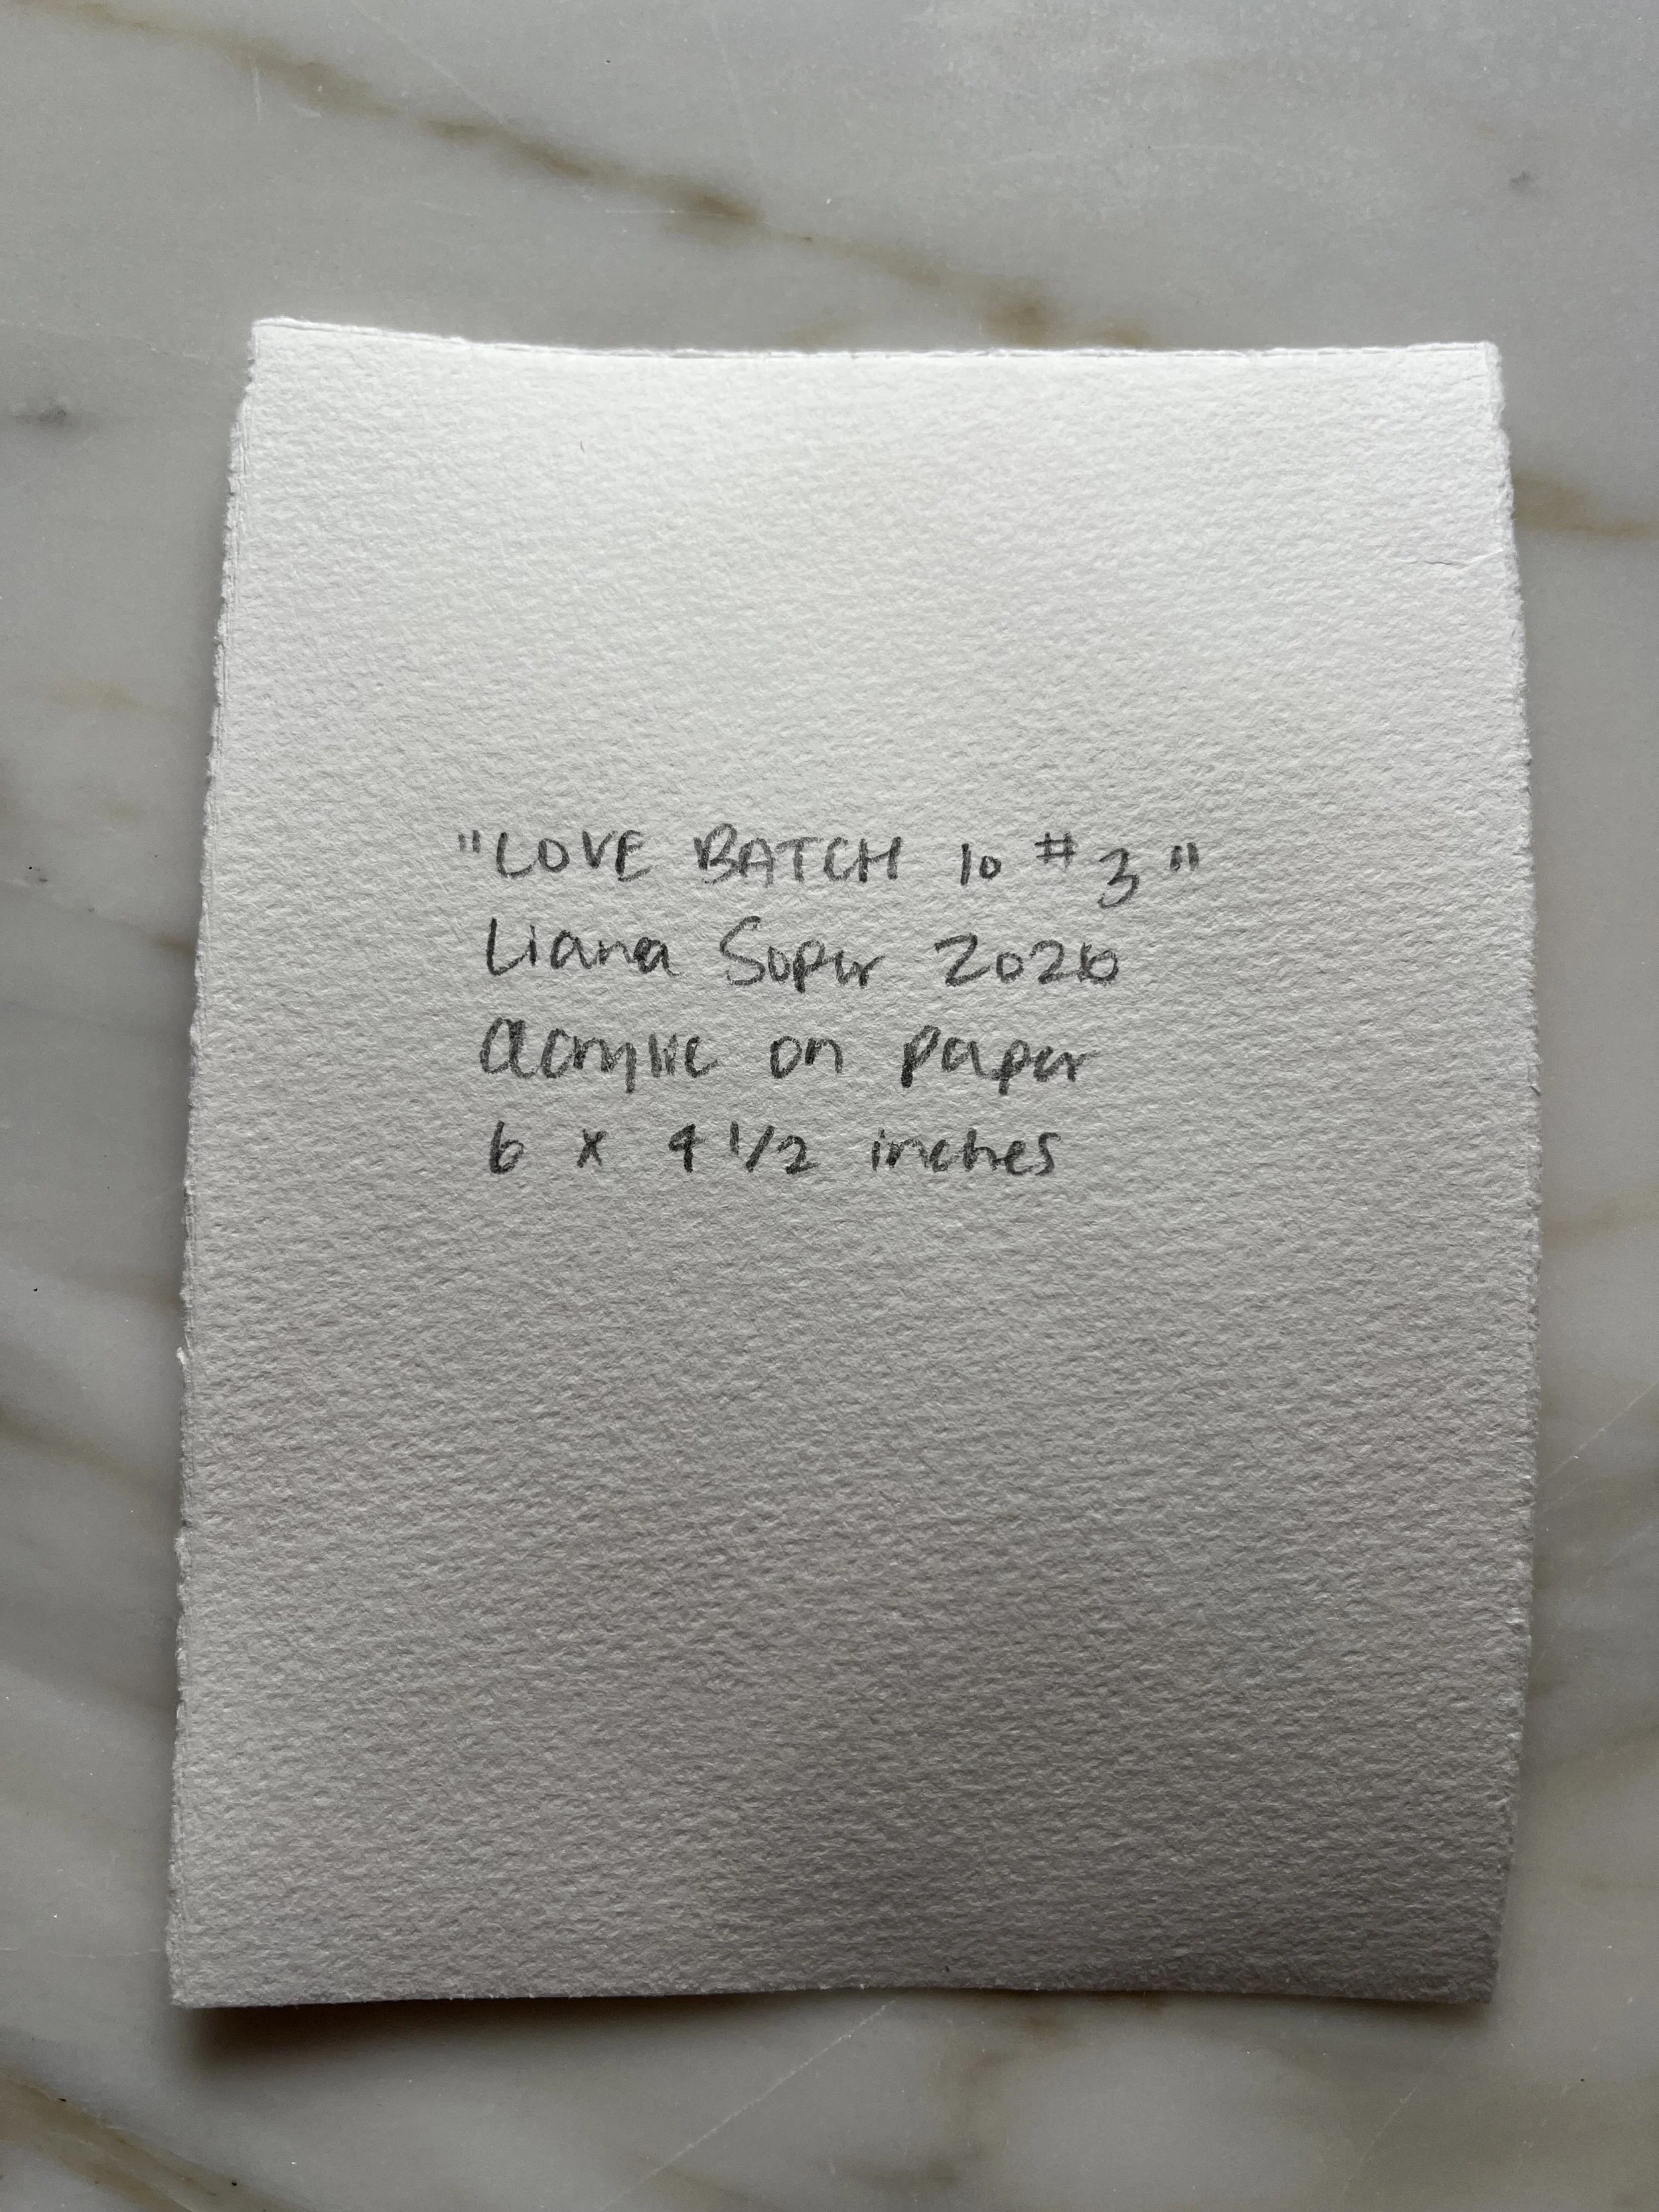 "LOVE BATCH 10 #3"
Liana Soper 2026
acrylic on paper
6 x 4 1/2 inches